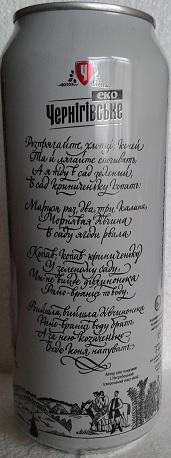 ЕКО
Чернігівське
Розпрягайте, хлопці, коней
Та й лягайте спочивать,
А я піду в сад зелений,
В сад криниченьку копать.
Маруся раз, два, три, калина,
Чорнявая дівчина
В саду ягоди рвала.
Копав, копав криниченьку
У зеленому саду.
Чи не вийде дівчинонька
Рано-вранці по воду.
Вийшла, вийшла дівчинонька
Рано-вранці воду брать,
А за нею козаченько
Веде коня напувать.